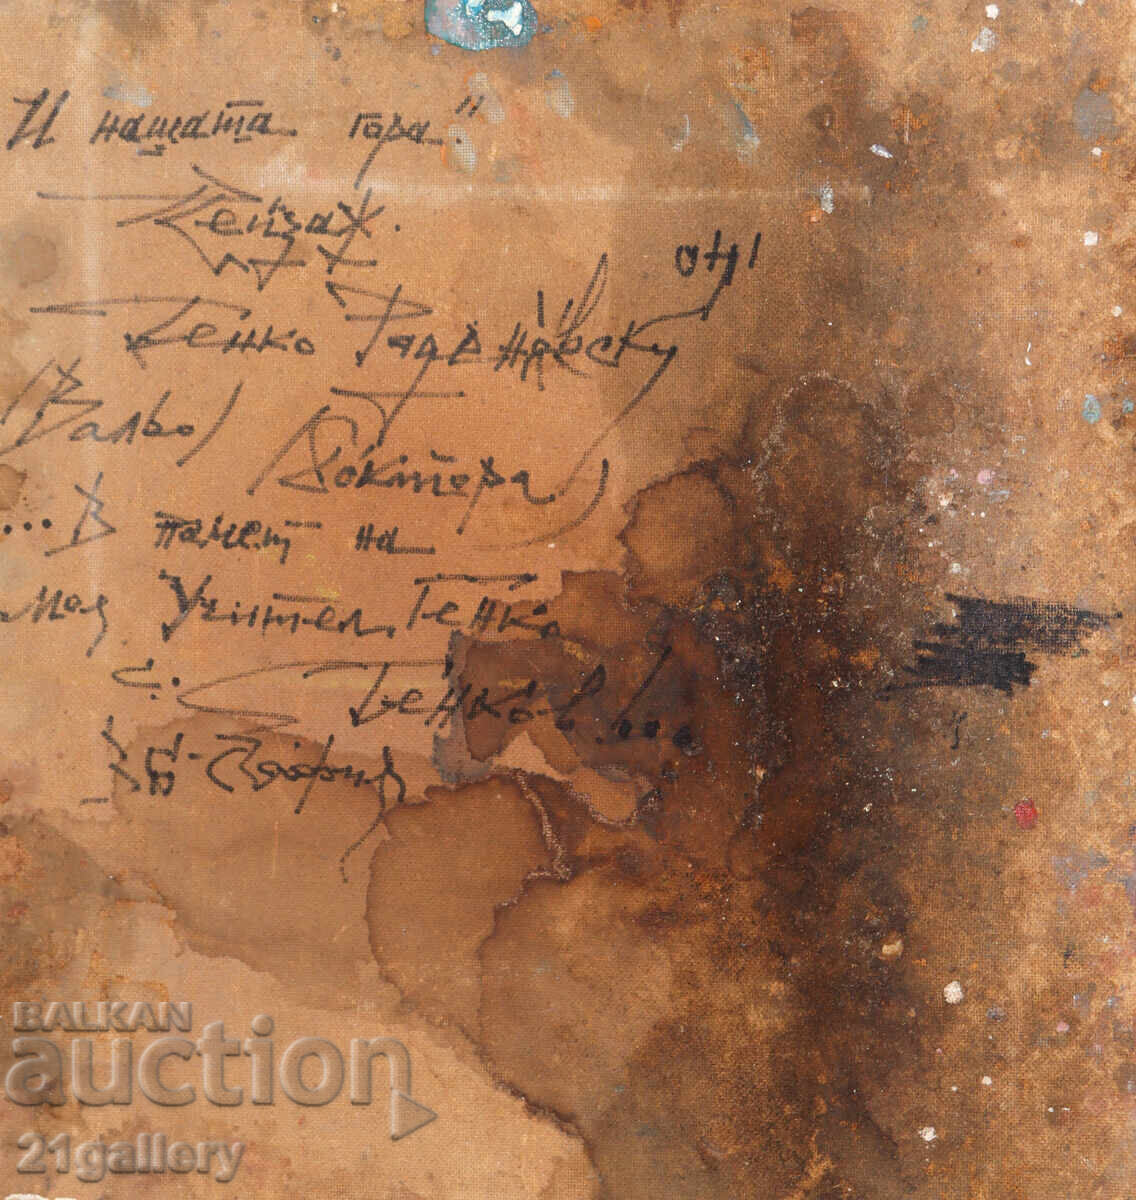 И нашата гора"
Пейзаж.
Генко
(Вальо) (Доктора)
... В памет на
моя Учител. Генко
с. Генков!...
BALKAN
auction
21gallery